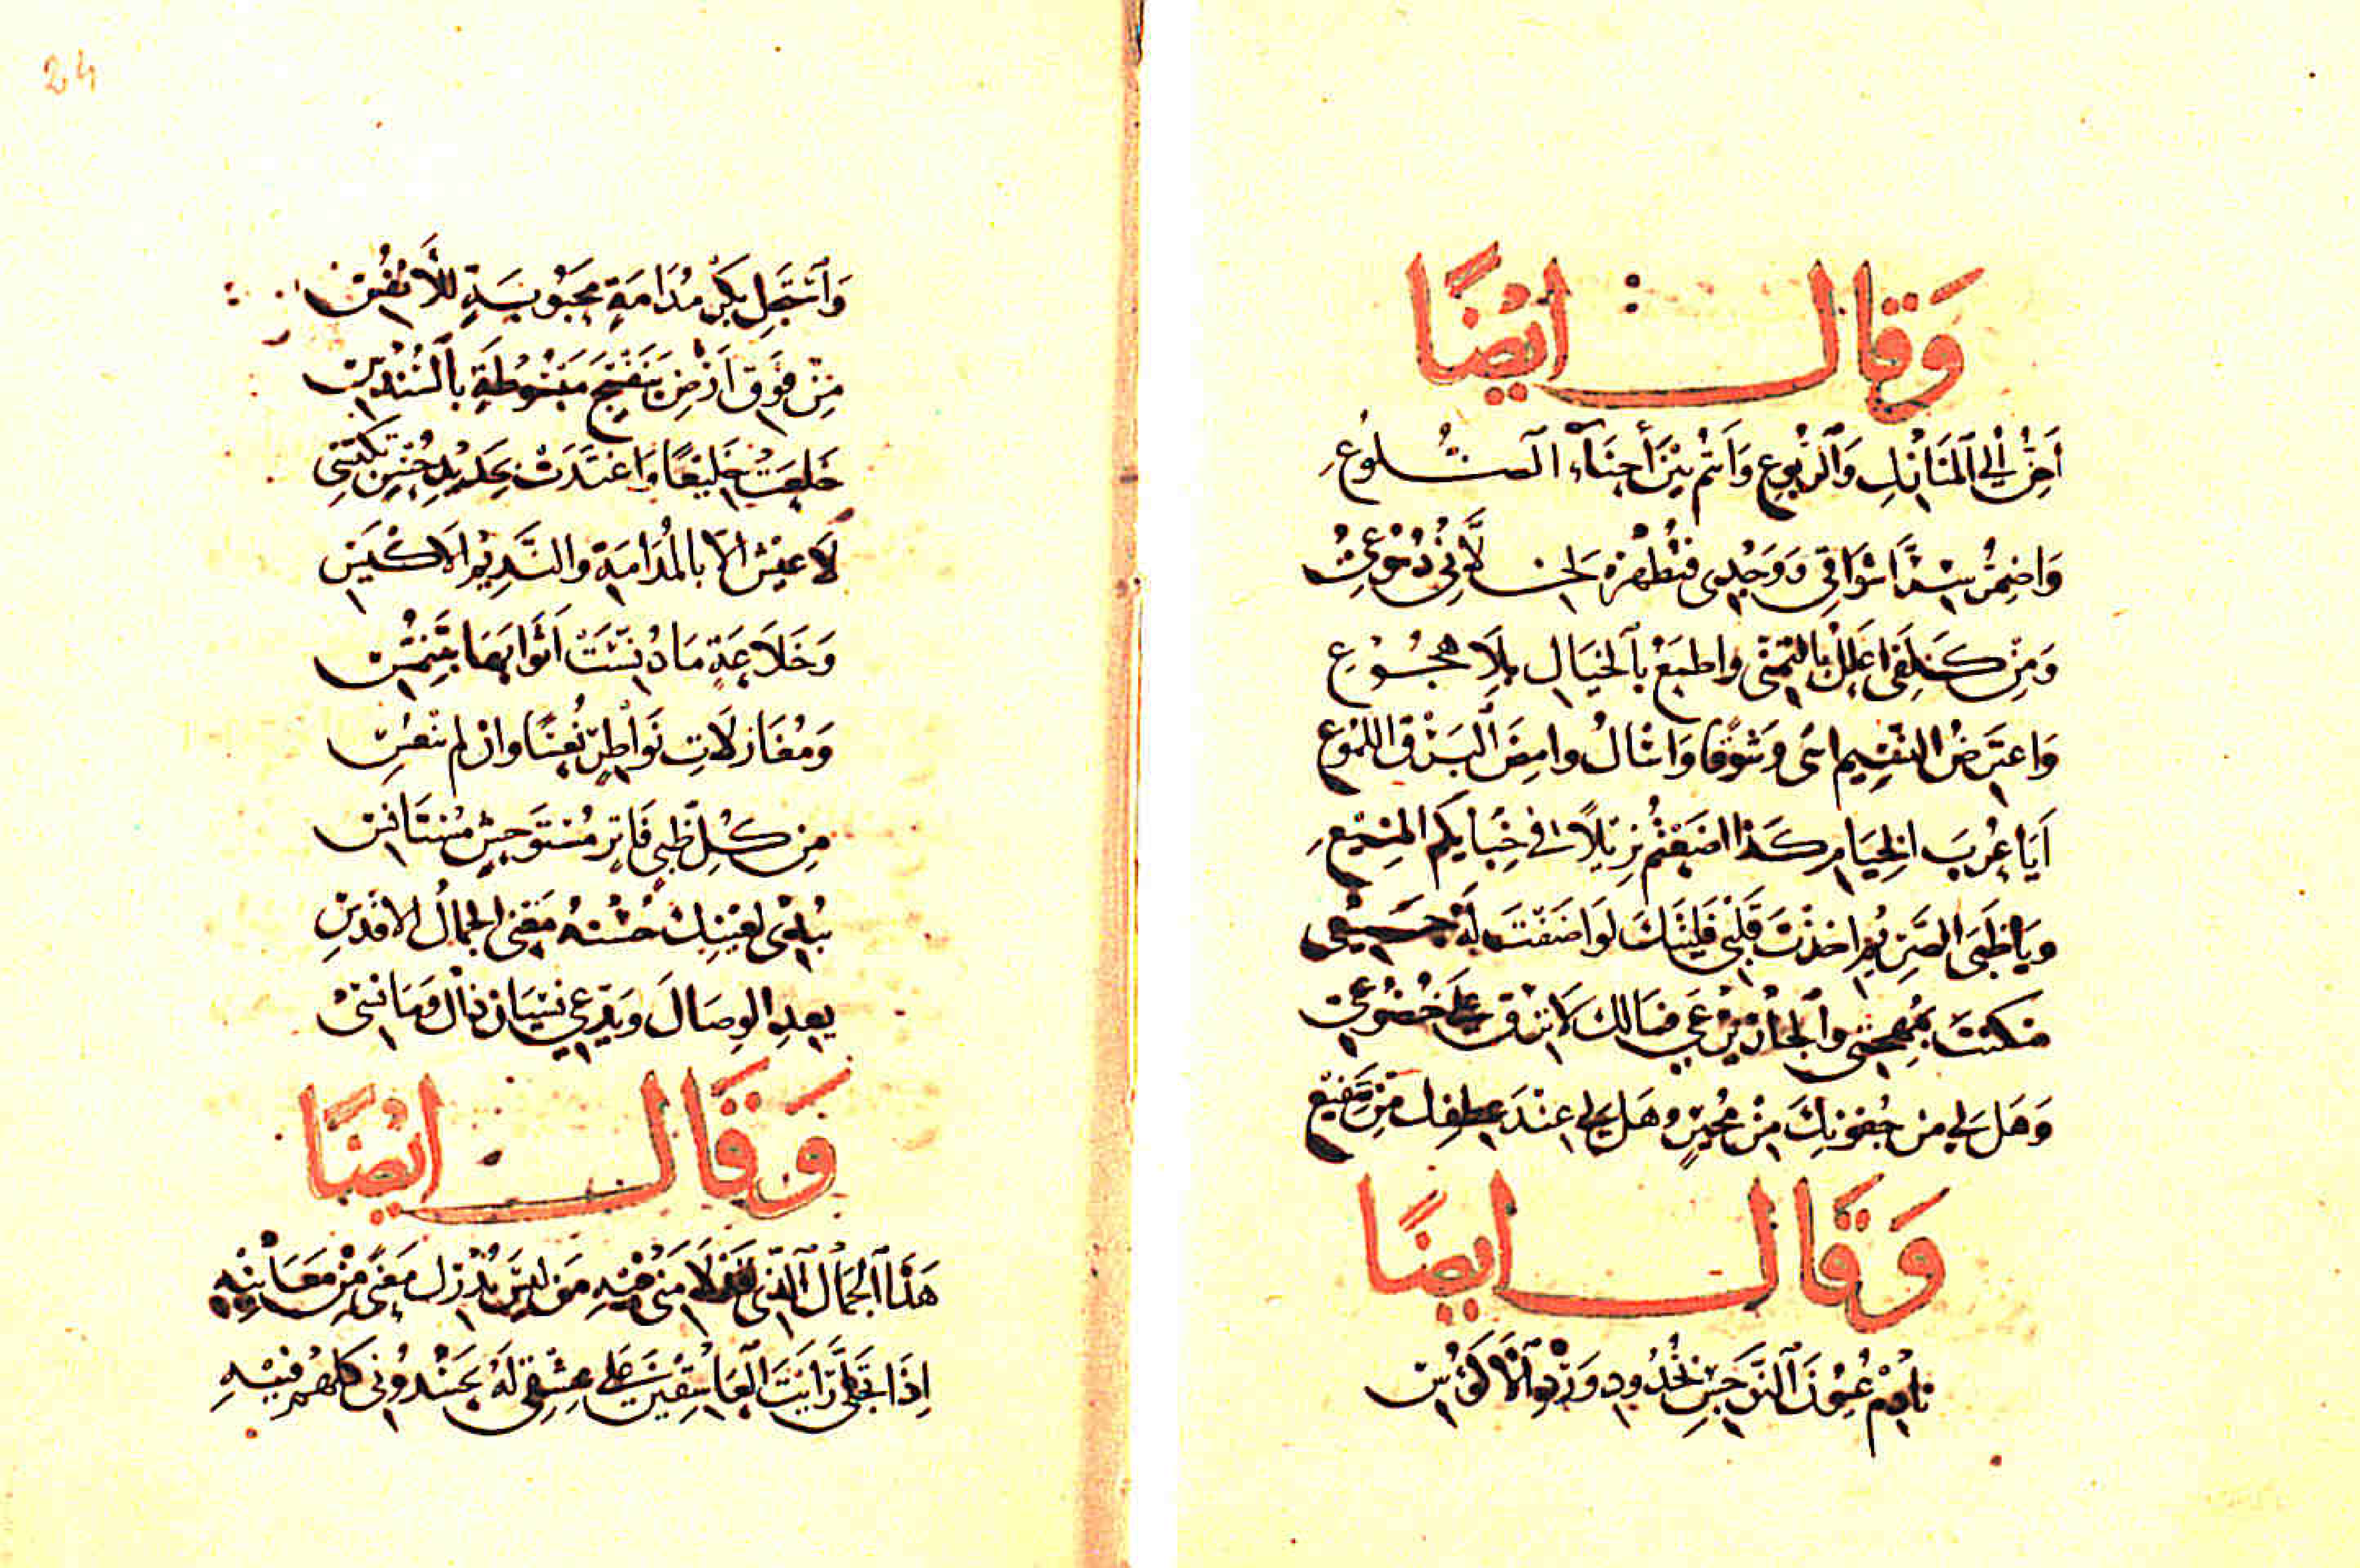 وَقَالَ ايْضًا
اَحِنُّ اِلَى المَنَازِلِ وَالرُّبُوعِ وَاَنْتُمْ بَيْنَ أَحْنَاءِ الضُّلُوعِ
وَاضْمِرُ سِرَّ اَشْوَاقِي وَوَجْدِى فَتُظْهِرُهُ لجفونى دُمُوعِي
وَمِنْ كَلَفِى اُعَلِّلُ بِالتَّمَنِّى واطمَعُ بالخَيَالِ بِلَا هُجُوعِ
وَاعْتَرِضُ النَّسِيمَ اسًى وَشَوْقًا وَاسْأَلُ وامِضَ البَرْقِ اللَّمُوعِ
اَيَا عُرْبَ الخِيَامِ كَذَا اضَعْتُمْ نزيلاً فى خِبَايِكُمُ المَنِيعِ
ويَا ظَبْىَ الصَّرِيْمِ اخَذْتَ قَلْبِى فَلَيْتَكَ لَوْ اَضَفْتَ لَهُ جَمِيْعِى
سَكَنْتَ بِمُهْجَتِى وَالجَارُ يُرْعَى فمَالك لَا تَرِقُّ عَلَى خُضُوعِي
وَهَل لِى مِنْ جُفُونِكَ مِنْ مُجِيْرٍ وَهَل لِى عِنْدَ عِطْفِكَ مِنْ شَفِيْعِ
وَقَالَ ايضًا
نَادِمْ عُيُونَ النَّرْجِسِ بخُدُودِ وَرْدِ الأَكْؤُسِ
وَاسْتَجْلِ بِكْرَ مُدَامَةٍ مَحْبُوبَةٍ لِلأَنْفُسِ
مِنْ فَوْقِ اَرْضِ بَنَفْسَجٍ مَبْسُوطَةٍ بِالسُّنْدُسِ
خَلَعَتْ خَلِيْعًا وَاغْتَدَتْ بِجَدِيْدِ حُسْنٍ تَكْتَسِى
لَا عَيْشَ الاَّ بِالمُدَامَةِ والنَّدِيْمِ الاَكْيَسِ
وَخَلَاعَةٍ مَا دُنِّسَتْ اَثْوَابُهَا بِتَنَمُّسِ
وَمُغَازَلَاتِ نَوَاظِرٍ نُعْسًا وان لم تَنْعُسِ
مِنْ كُلِّ ظَبْىٍ فَاتِرٍ مُسْتَوْحِشٍ مُسْتَأْنِسِ
يُبْدِى لِعَيْنِكَ حُسْنُهُ مَعْنَى الجمَالِ الاَقْدَسِ
يَعِدِ الوِصَالَ وَيَدَّعِي نِسْيَانَ ذَاكَ وَمَا نَسِى
وَقَالَ ايْضًا
هَذَا الجَمَالُ الَّذِى مَنْ لَيْسَ يُدْرِك مَعْنًى مِنْ مَعَانِيْهِ
اِذَا تَجَلَّى رَأَيْتَ العَاشِقِينَ عَلَى عِشْقِى لَهُ يَحْسُدُونِى كُلُّهُمْ فِيْهِ
24